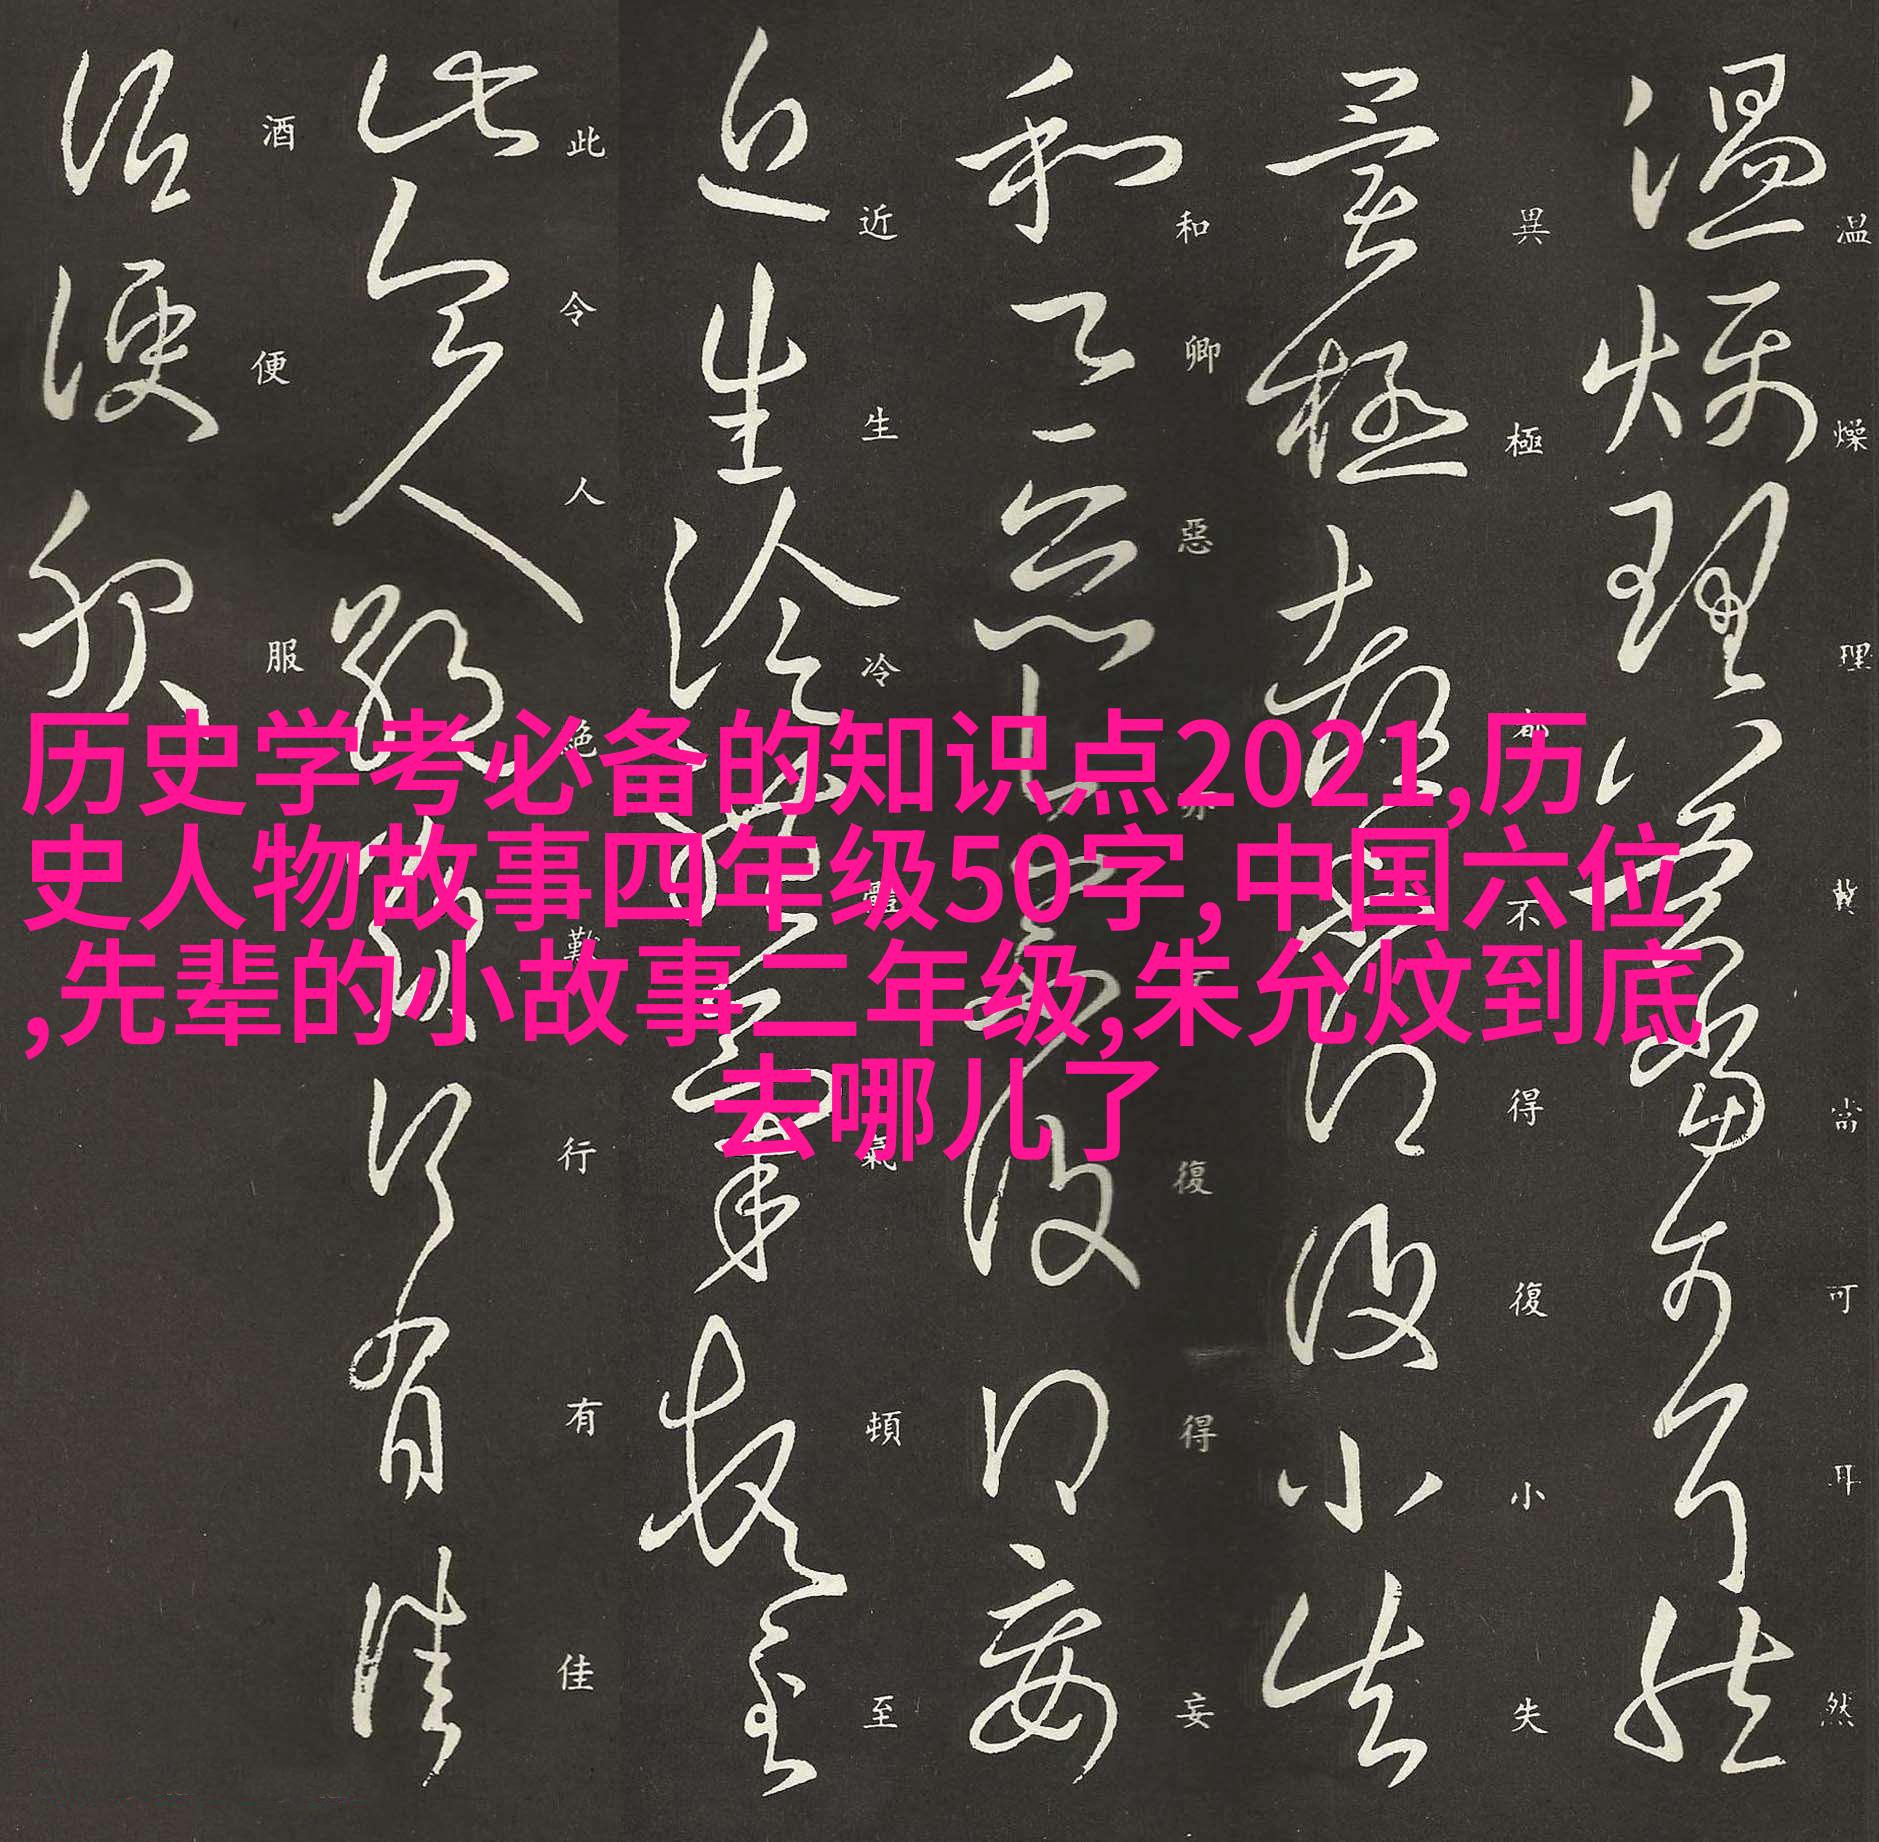 历史学考必备的知识点2021,历
史人物故事四年级50字,中国六位
,先辈的小故事二年级,朱允炆到底
去哪儿了
温燥理冀當可耳然
異極都不得復小失
和卿惡亦可復得妄
近生冷體氣頓至
此令人絶勤行有佳
酒便服